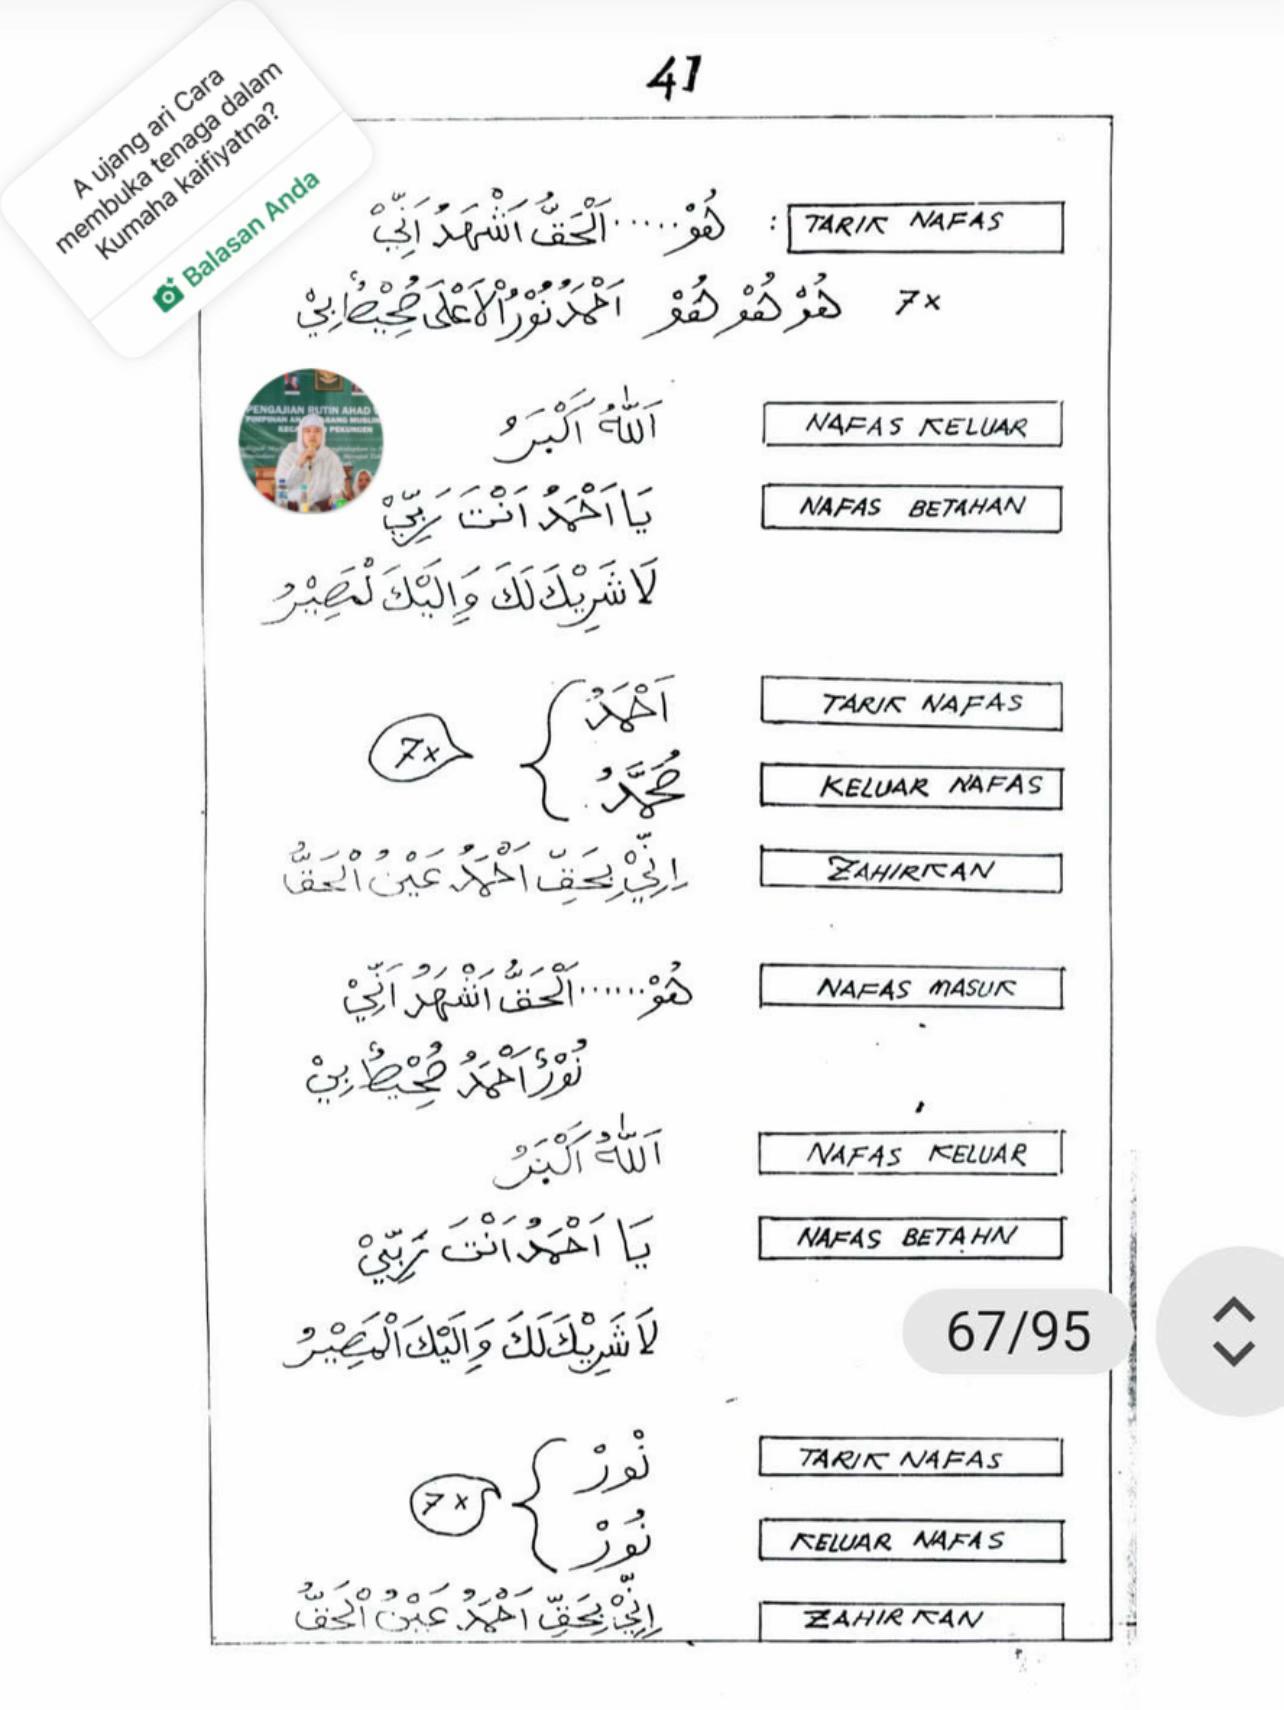 41
A ujang ari Cara
membuka tenaga dalam
Kumaha kaifiyatna?
Balasan Anda
TARIK NAFAS : هُوْ.....اَلْحَقُّ اَشْهَدُ اَنِّيْ
7x هُوْ هُوْ هُوْ اَحْمَدُ نُوْرُ الْاَعْلَى مُحِيْطٌ بِيْ
PENGAJIAN RUTIN AHAD
NAFAS KELUAR اَللّٰهُ اَكْبَرُ
NAFAS BETAHAN يَا اَحْمَدُ اَنْتَ رَبِّيْ
لَا شَرِيْكَ لَكَ وَاِلَيْكَ لْمَصِيْرُ
TARIK NAFAS اَحْمَدُ
7x
KELUAR NAFAS مُحَمَّدُ
ZAHIRKAN اِنِّيْ بِحَقِّ اَحْمَدُ عَيْنُ الْحَقُّ
NAFAS MASUK هُوْ......اَلْحَقُّ اَشْهَدُ اَنِّيْ
نُوْرُ اَحْمَدُ مُحِيْطٌ بِيْ
NAFAS KELUAR اَللّٰهُ اَكْبَرُ
NAFAS BETAHN يَا اَحْمَدُ اَنْتَ رَبِّيْ
لَا شَرِيْكَ لَكَ وَاِلَيْكَ الْمَصِيْرُ
67/95
TARIK NAFAS نُورْ
7x
KELUAR NAFAS نُورْ
ZAHIRKAN اِنِّيْ بِحَقِّ اَحْمَدُ عَيْنُ الْحَقُّ